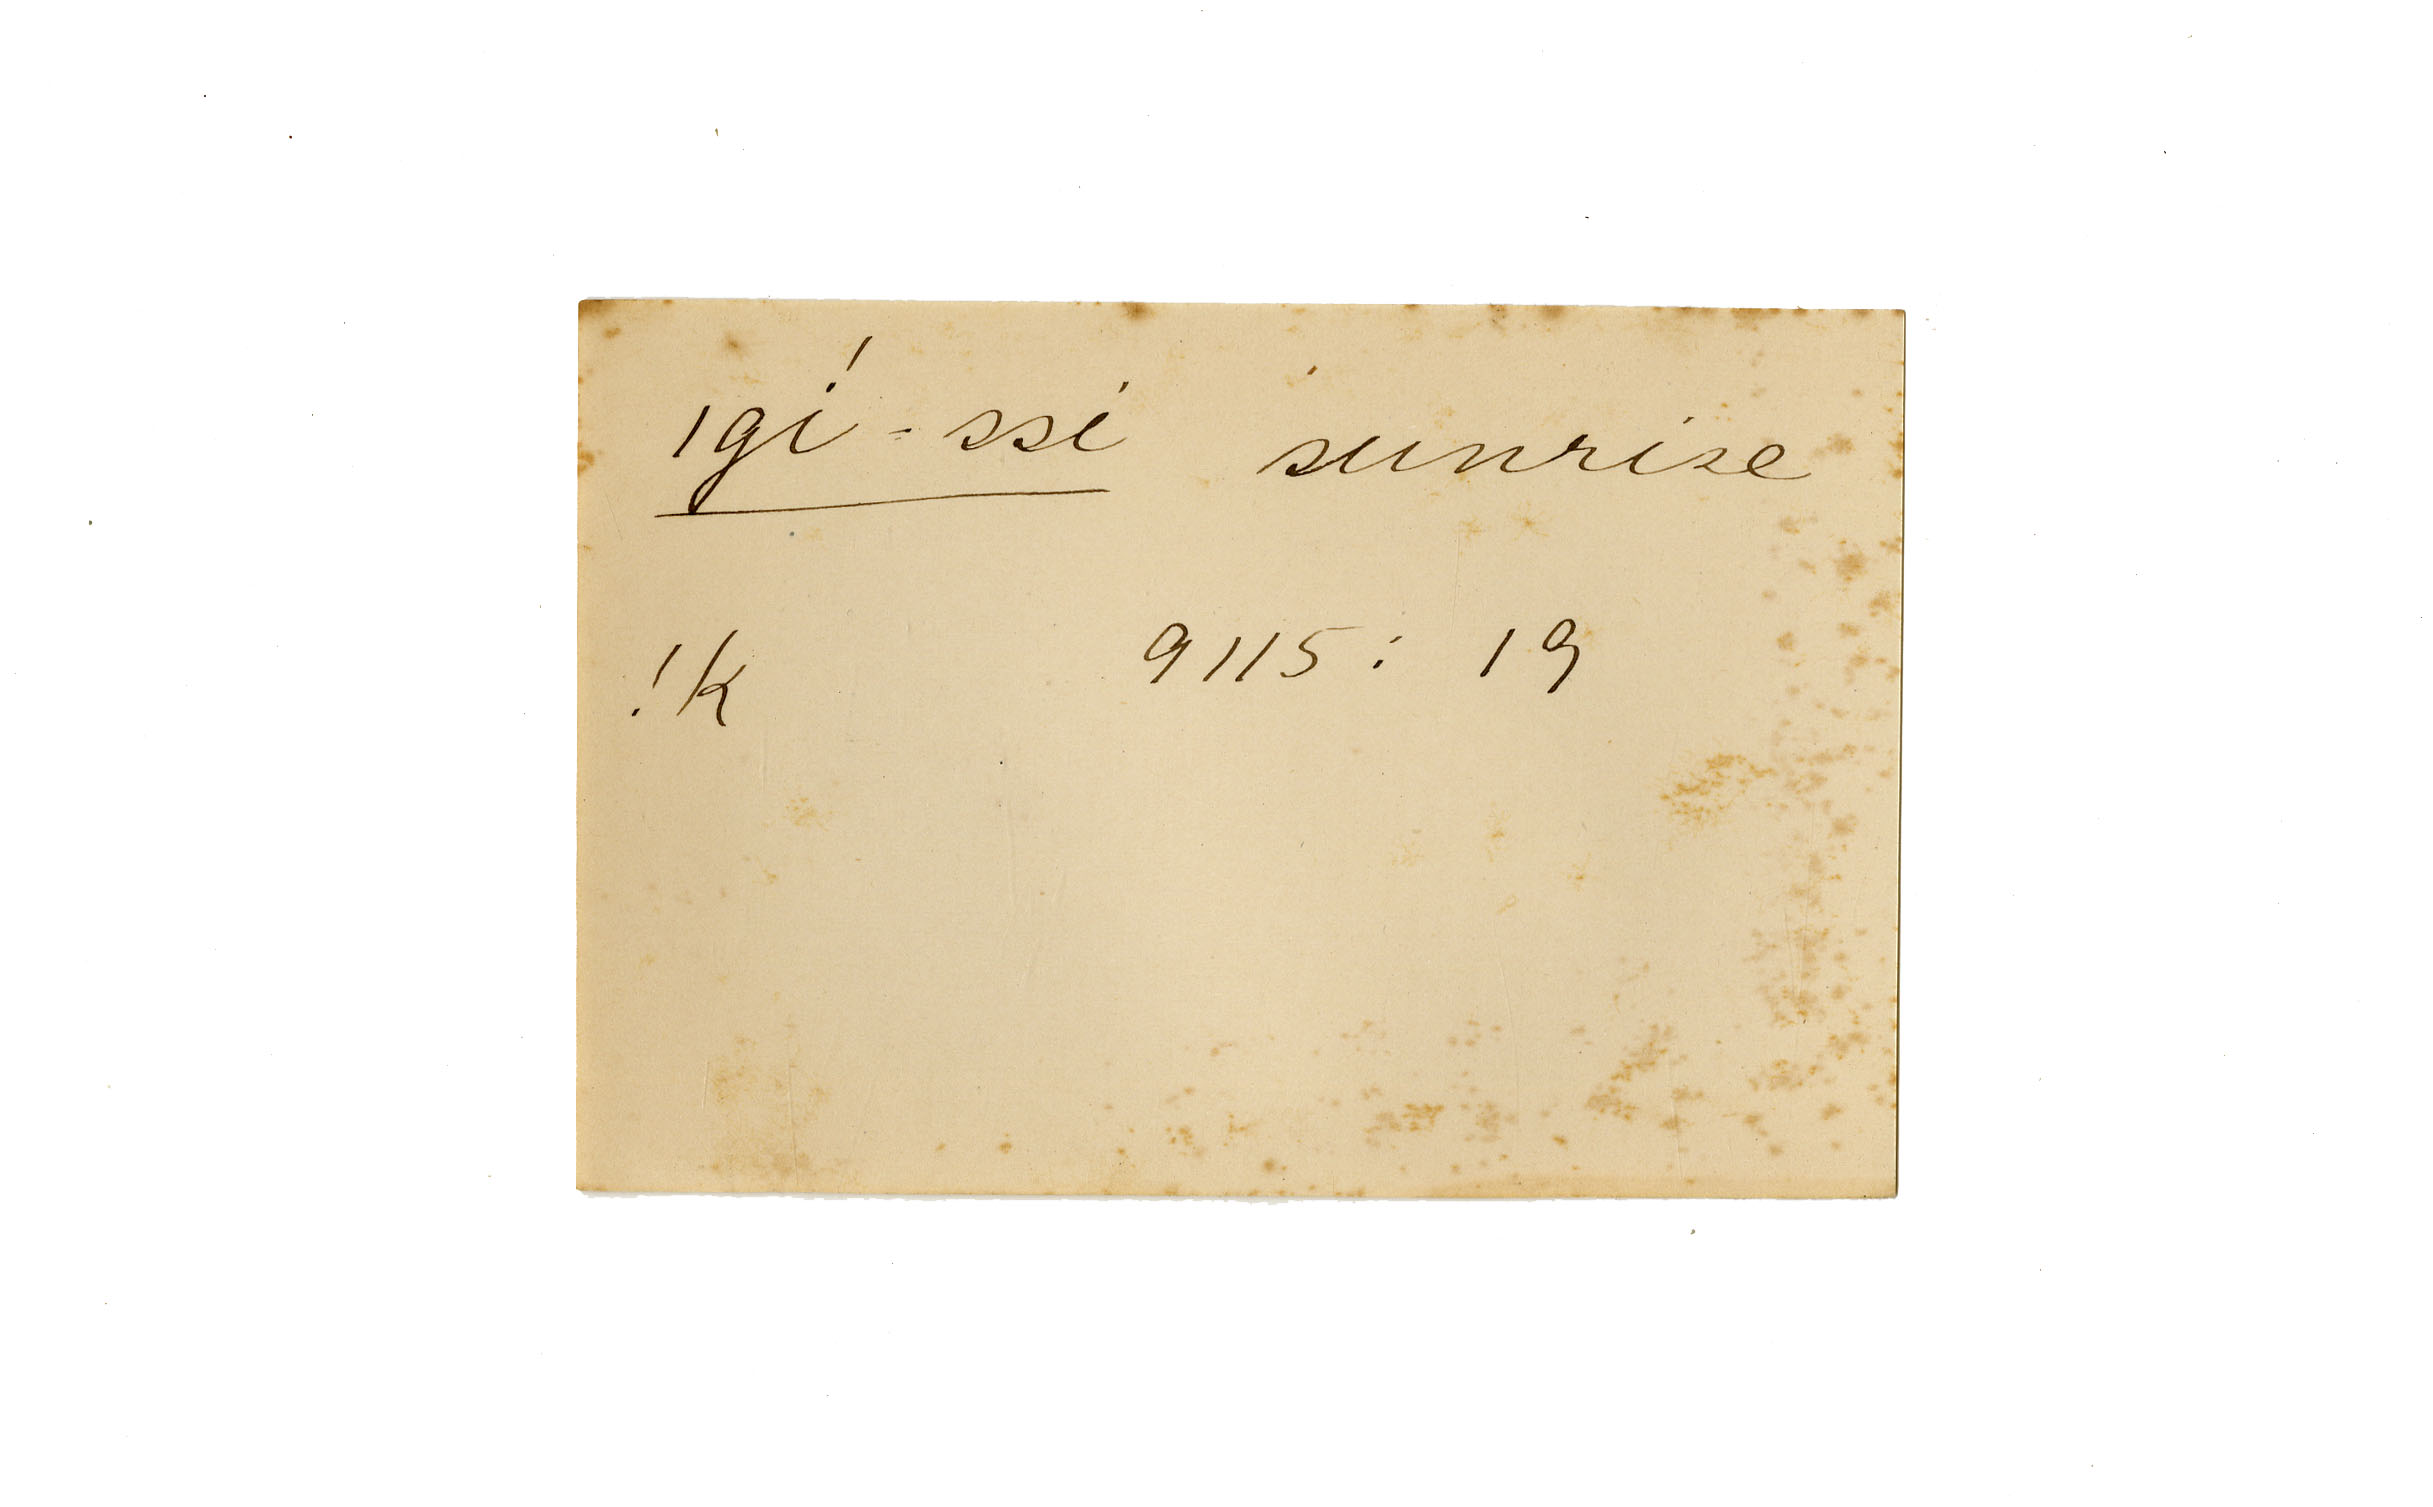 ıgí-ssi sunrise
!k 9115: 19